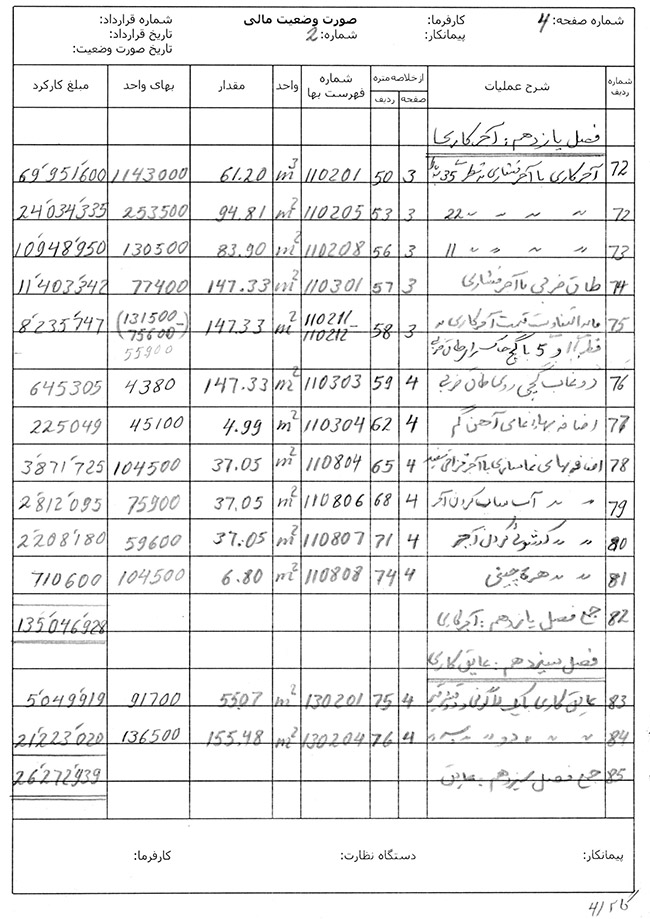 شماره صفحه: 4 کارفرما: صورت وضعیت مالی شماره قرارداد:
پیمانکار: شماره: 2 تاریخ قرارداد:
تاریخ صورت وضعیت:
شماره ردیف شرح عملیات از خلاصه متره صفحه ردیف شماره فهرست بها واحد مقدار بهای واحد مبلغ کارکرد
فصل یازدهم: آجرکاری
72 آجرکاری با آجر فشاری به قطر 35 3 50 110201 m³ 61.20 1143000 69'951'600
72 " " " " 22 3 53 110205 m² 94.81 253500 24'034'335
73 " " " " 11 3 56 110208 m² 83.90 130500 10'948'950
74 طاق ضربی با آجر فشاری 3 57 110301 m² 147.33 77400 11'403'342
75 مابه التفاوت قیمت آجرکاری به 3 58 110211 - 110212 m² 147.33 (131500 - 75600) 55900 8'235'747
قطر 11 و 5 با گچ و خاک
76 دوغاب گچی روی طاق ضربی 4 59 110303 m² 147.33 4380 645305
77 اضافه بها آهن گم 4 62 110304 m² 4.99 45100 225049
78 اضافه بهای نماسازی با آجر قزاقی سفید 4 65 110804 m² 37.05 104500 3'871'725
79 " " آب ساب کردن آجر 4 68 110806 m² 37.05 75900 2'812'095
80 " " کردن آجر 4 71 110807 m² 37.05 59600 2'208'180
81 " " هره چینی 4 74 110808 m² 6.80 104500 710600
82 جمع فصل یازدهم: آجرکاری 135'046'928
فصل سیزدهم: عایق کاری
83 عایق کاری با یک لا گونی و دو قشر قیر 4 75 130201 m² 55.07 91700 5'049'919
84 " " " دو " " 4 76 130204 m² 155.48 136500 21'223'020
85 جمع فصل سیزدهم: عایق 26'272'939
پیمانکار: دستگاه نظارت: کارفرما: